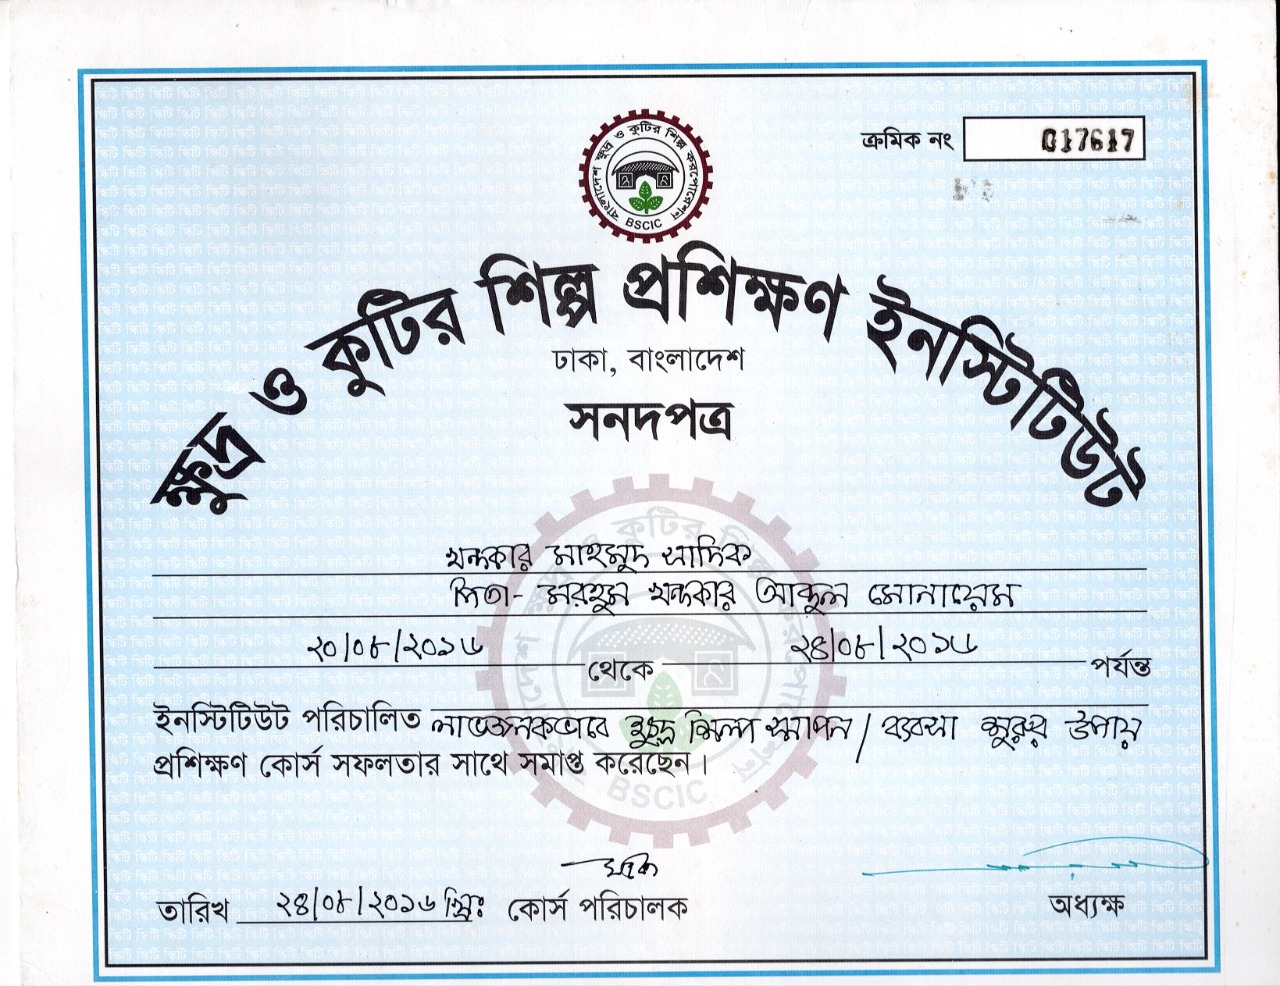 ক্রমিক নং 017617
বাংলাদেশ ক্ষুদ্র ও কুটির শিল্প করপোরেশন
BSCIC
ক্ষুদ্র ও কুটির শিল্প প্রশিক্ষণ ইনস্টিটিউট
ঢাকা, বাংলাদেশ
সনদপত্র
খন্দকার মাহমুদ সাদিক
পিতা- মরহুম খন্দকার আব্দুল মোনায়েম
২০/০৮/২০১৬ থেকে ২৪/০৮/২০১৬ পর্যন্ত
ইনস্টিটিউট পরিচালিত লাভজনকভাবে ক্ষুদ্র শিল্প স্থাপন / ব্যবসা শুরুর উপায়
প্রশিক্ষণ কোর্স সফলতার সাথে সমাপ্ত করেছেন।
BSCIC
তারিখ ২৪/০৮/২০১৬ খ্রিঃ কোর্স পরিচালক অধ্যক্ষ